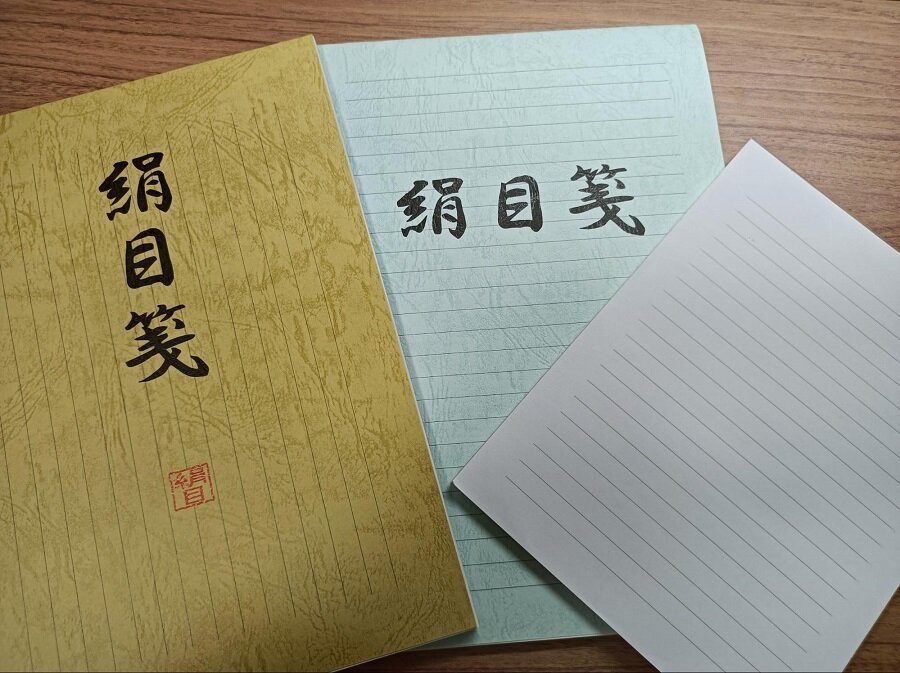 絹目箋
絹目
絹目箋